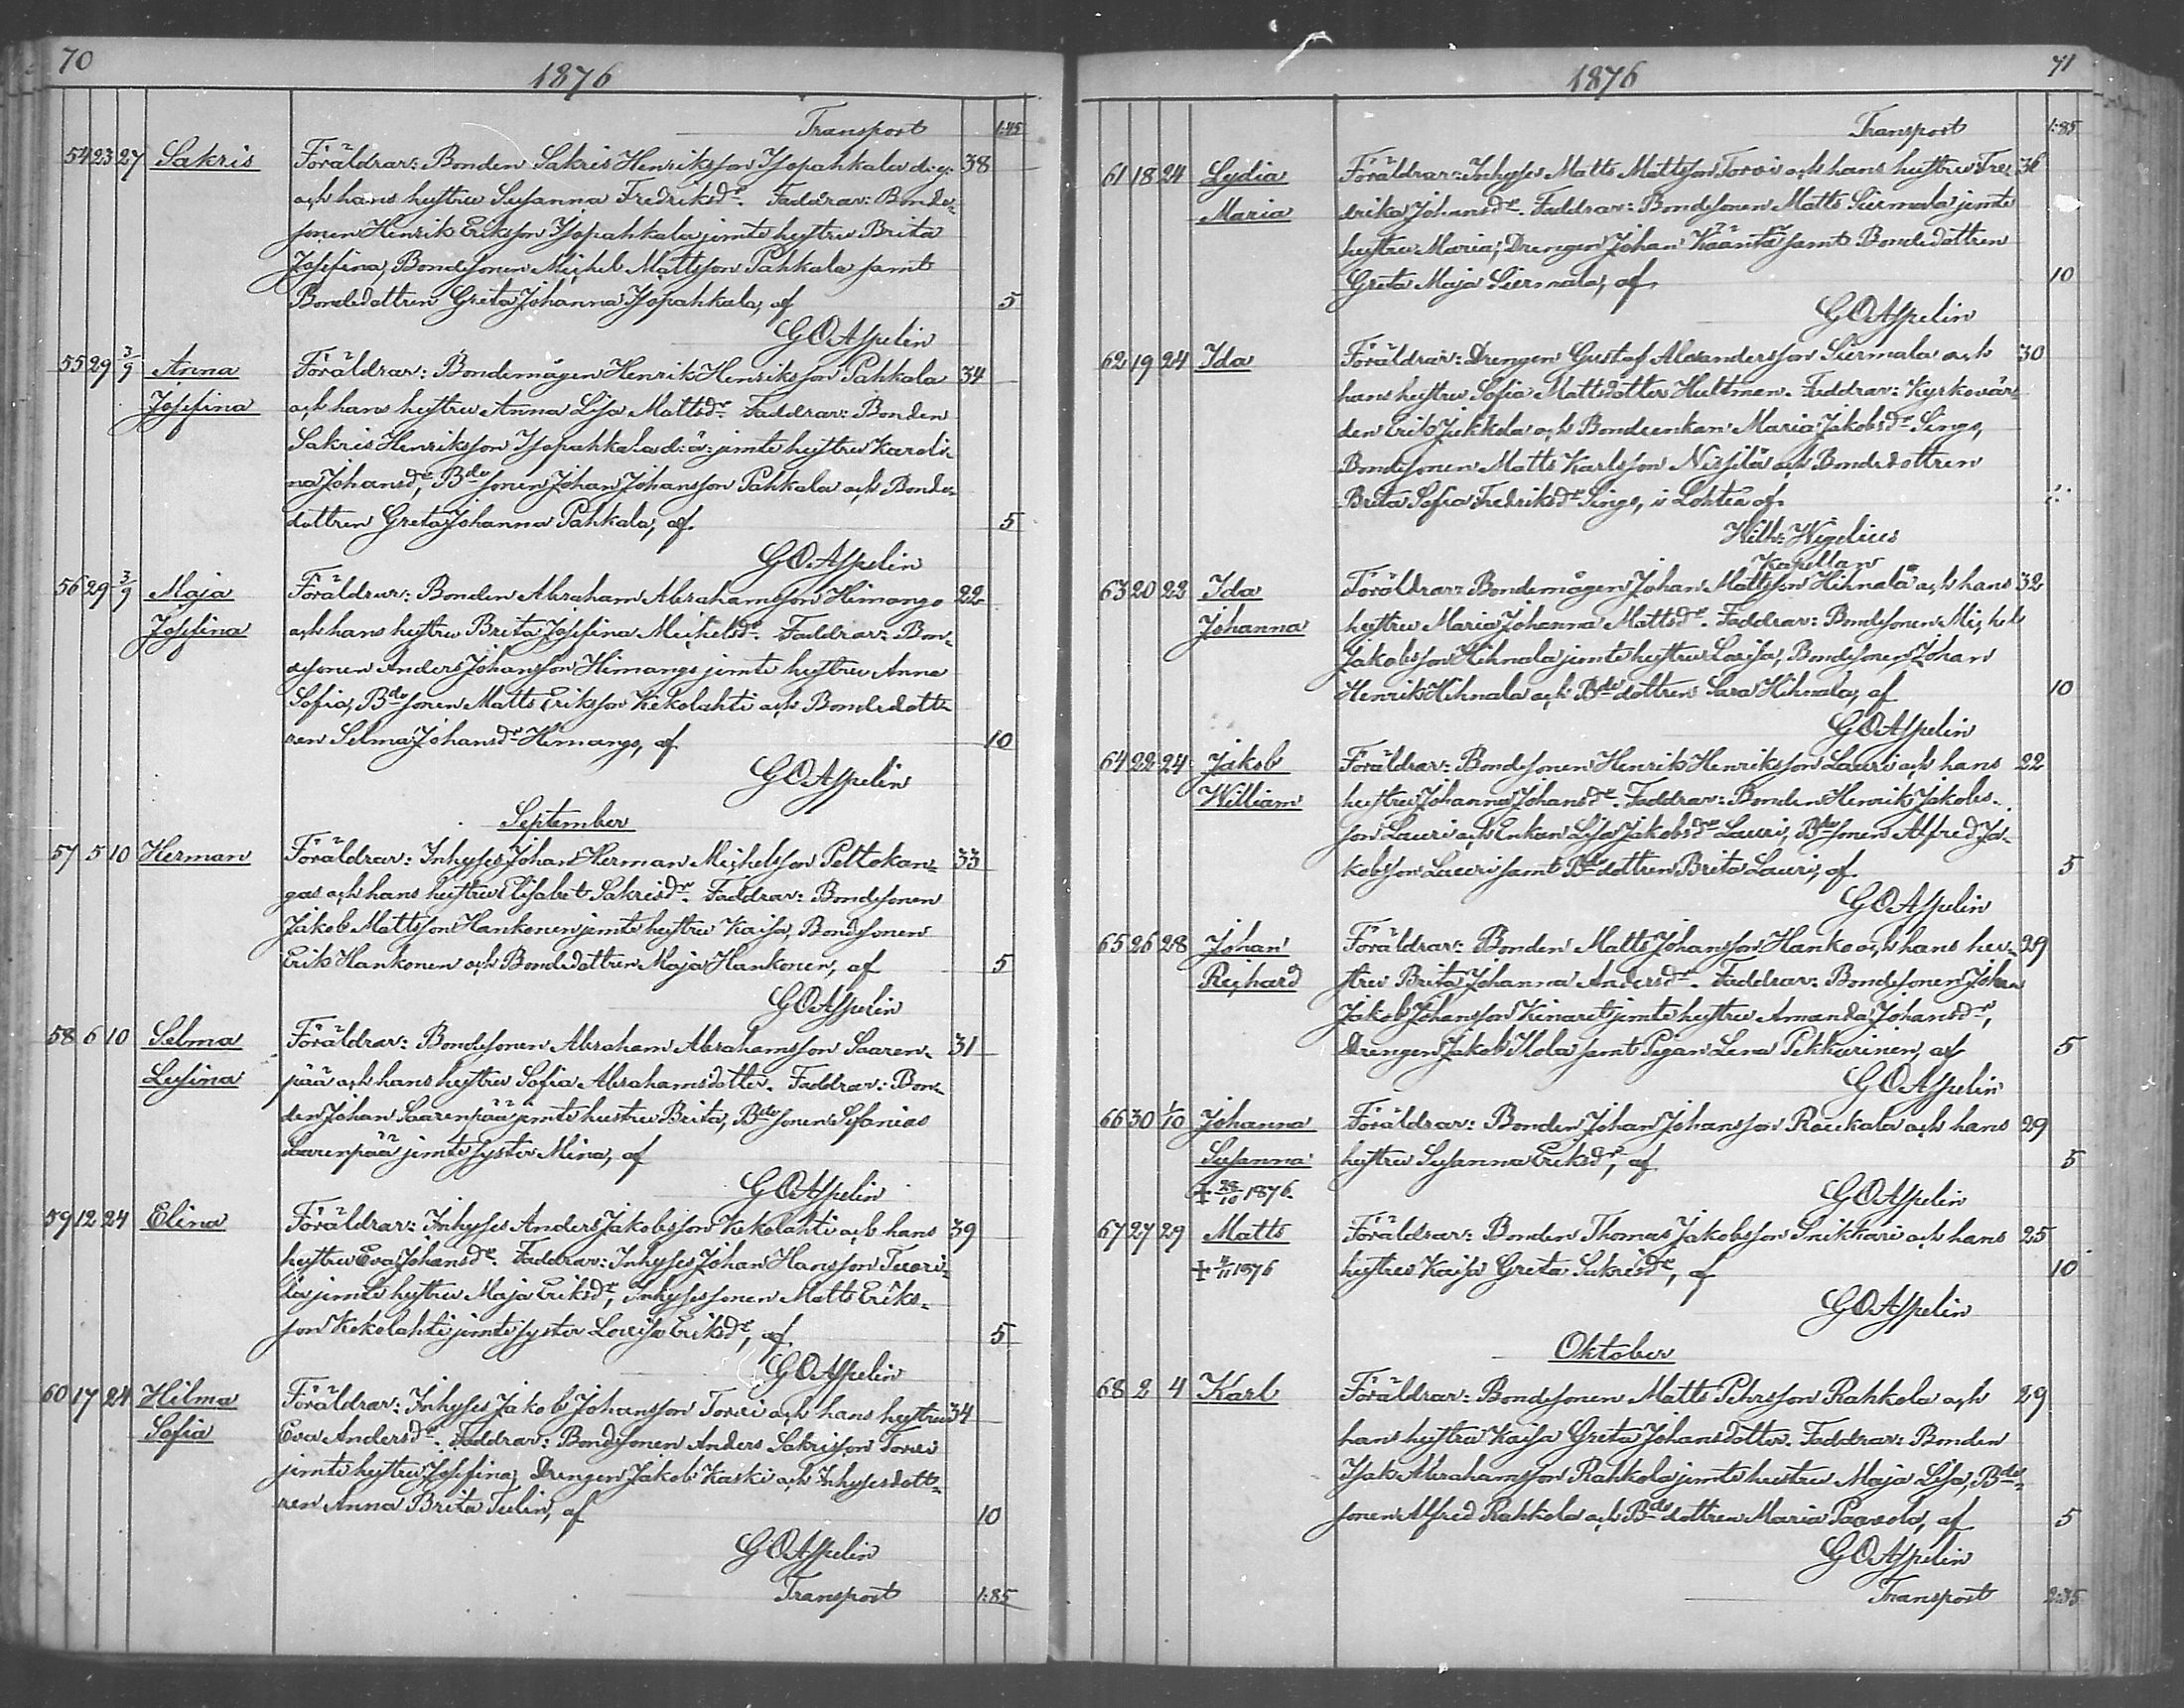 70
1876
Transport 1:45
54 23 27 Sakris Föräldrar: Bonden Sakris Henriksson Isopahkala d:y: 38
och hans hustru Susanna Fredriksdr. Faddrar: Bonde-
sonen Henrik Eriksson Isopahkala jemte hustru Brita
Josefina, Bondesonen Michel Mattsson Pahkala samt
Bondedottren Greta Johanna Isopahkala, af 5
GOAspelin
55 29 3/9 Anna Föräldrar: Bondemågen Henrik Henriksson Pahkala 34
Josefina och hans hustru Anna Lisa Mattsdr. Faddrar: Bonden
Sakris Henriksson Isopahkala d:ä: jemte hustru Karoli-
na Johansdr, Bdesonen Johan Johansson Pahkala och Bonde-
dottren Greta Johanna Pahkala, af 5
GOAspelin
56 29 3/9 Maja Föräldrar: Bonden Abraham Abrahamsson Himango 22
Josefina och hans hustru Brita Josefina Michelsdr. Faddrar: Bon-
desonen Anders Johansson Himango jemte hustru Anna
Sofia, Bdesonen Matts Eriksson Kekolahti och Bondedott-
ren Selma Johansdr Himango, af 10
GOAspelin
September
57 5 10 Herman Föräldrar: Inhyses Johan Herman Michelsson Peltokan- 33
gas och hans hustru Elisabet Sakrisdr. Faddrar: Bondesonen
Jakob Mattsson Hankonen jemte hustru Kaisa, Bondesonen
Erik Hankonen och Bondedottren Maja Hankonen, af 5
GOAspelin
58 6 10 Selma Föräldrar: Bondesonen Abraham Abrahamsson Saaren- 31
Lusina pää och hans hustru Sofia Abrahamsdotter. Faddrar: Bon-
den Johan Saarenpää jemte hustru Brita, Bdesonen Sefanias
Saarenpää jemte syster Mina, af
GOAspelin
59 12 24 Elina Föräldrar: Inhyses Anders Jakobsson Kekolahti och hans 39
hustru Eva Johansdr. Faddrar: Inhyses Johan Hansson Tuori-
la jemte hustru Maja Eriksdr, Inhysessonen Matts Eriks-
son Kekolahti jemte syster Lovisa Eriksdr, af 5
GOAspelin
60 17 24 Hilma Föräldrar: Inhyses Jakob Johansson Torvi och hans hustru 34
Sofia Eva Andersdr. Faddrar: Bondesonen Anders Sakrisson Torvi
jemte hustru Josefina, Drengen Jakob Kaski och Inhysesdott-
ren Anna Brita Tulin, af 10
GOAspelin
Transport 1:85
71
1876
Transport 1:85
61 18 24 Lydia Föräldrar: Inhyses Matts Mattsson Torvi och hans hustru Fre- 36
Maria drika Johansdr. Faddrar: Bondesonen Matts Siermala jemte
hustru Maria, Drengen Johan Kääntä samt Bondedottren
Greta Maja Siermala, af 10
GOAspelin
62 19 24 Ida Föräldrar: Drengen Gustaf Alexandersson Siermala och 30
hans hustru Sofia Mattsdotter Hultman. Faddrar: Kyrkovär-
den Erik Jukkola och Bondeenkan Maria Jakobsdr Singo,
Bondesonen Matts Karlsson Nissilä och Bondedottren
Brita Sofia Fredriksdr Singo, i Lohteå af
Wilh: Wigelius
Kapellan
63 20 23 Ida Föräldrar: Bondemågen Johan Mattsson Hihnala och hans 32
Johanna hustru Maria Johanna Mattsdr. Faddrar: Bondesonen Michel
Jakobsson Hihnala jemte hustru Lovisa, Bondesonen Johan
Henrik Hihnala och Bdedottren Sara Hihnala, af 10
GOAspelin
64 22 24 Jakob Föräldrar: Bondesonen Henrik Henriksson Lauri och hans 22
William hustru Johanna Johansdr. Faddrar: Bonden Henrik Jakobs-
son Lauri och Enkan Lisa Jakobsdr Lauri, Bdesonen Alfred Ja-
kobsson Lauri samt Bdedottren Brita Lauri, af 5
GOAspelin
65 26 28 Johan Föräldrar: Bonden Matts Johansson Hanko och hans hu- 29
Reichard stru Brita Johanna Andersdr. Faddrar: Bondesonen Johan
Jakob Johansson Kinaret jemte hustru Amanda Johansdr,
Drengen Jakob Skola samt Pigan Lena Pekkarinen, af 5
GOAspelin
66 30 1/10 Johanna Föräldrar: Bonden Johan Johansson Raukala och hans 29
Susanna hustru Susanna Eriksdr, af 5
+ 28/10 1876. GOAspelin
67 27 29 Matts Föräldrar: Bonden Thomas Jakobsson Snikkari och hans 25
1876 hustru Kaisa Greta Sakrisdr, af 10
GOAspelin
Oktober
68 2 4 Karl Föräldrar: Bondesonen Matts Pehrsson Rahkola och 29
hans hustru Kaisa Greta Johansdotter. Faddrar: Bonden
Isak Abrahamsson Rahkola jemte hustru Maja Lisa, Bde-
sonen Alfred Rahkola och Bdedottren Maria Paavola, af 5
GOAspelin
Transport 2:35